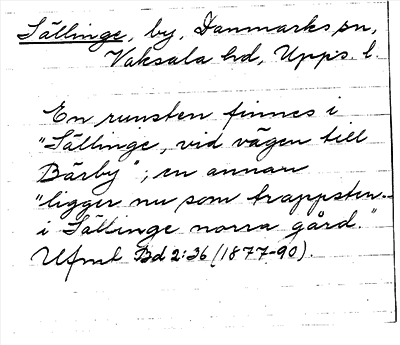 Sällinge, by, Danmarks sn,
Vaksala hd, Upps. l.
En runsten finnes i
"Sällinge, vid vägen till
Bärby"; en annan
"ligger nu som trappsten
i Sällinge norra gård."
Ufmt Bd 2:36 (1877-90).